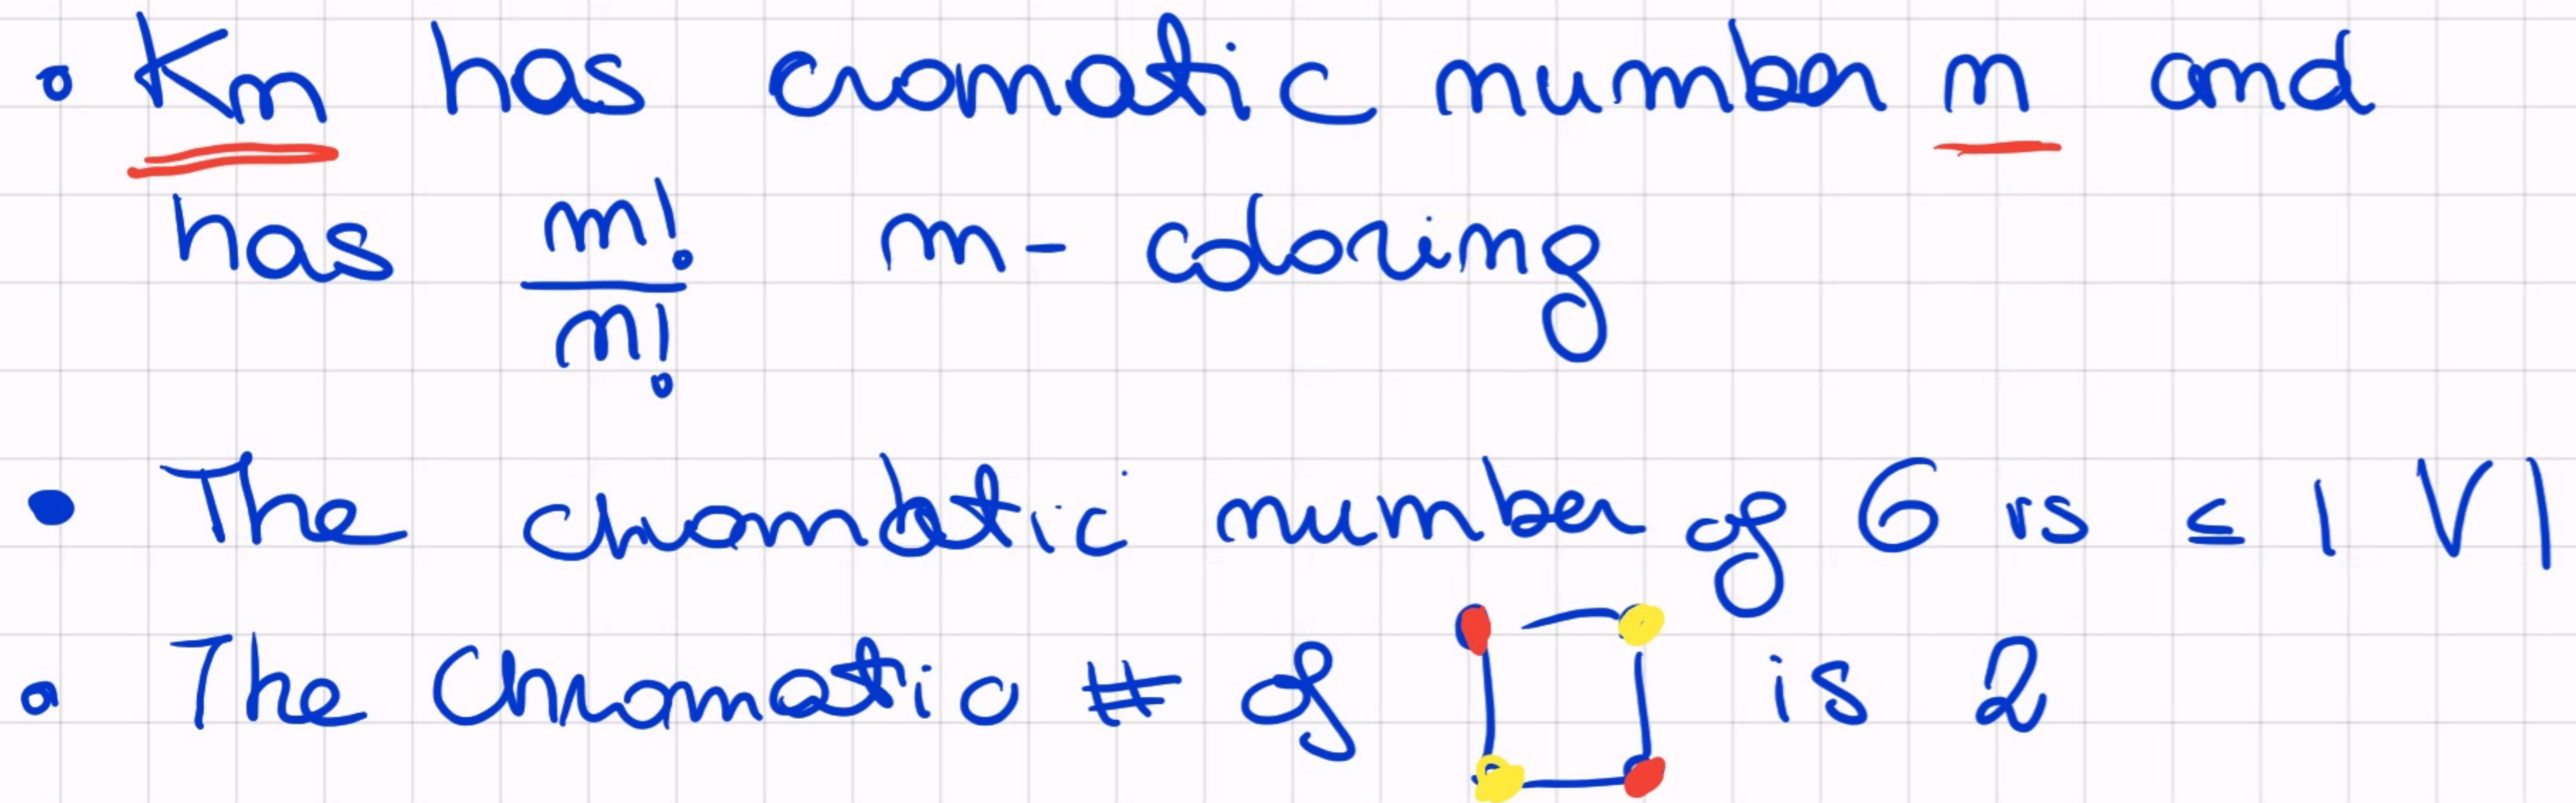 • Kn has cromatic number n and
has m!/n! m-coloring
• The chromatic number of G is ≤ |V|
• The Chromatic # of is 2